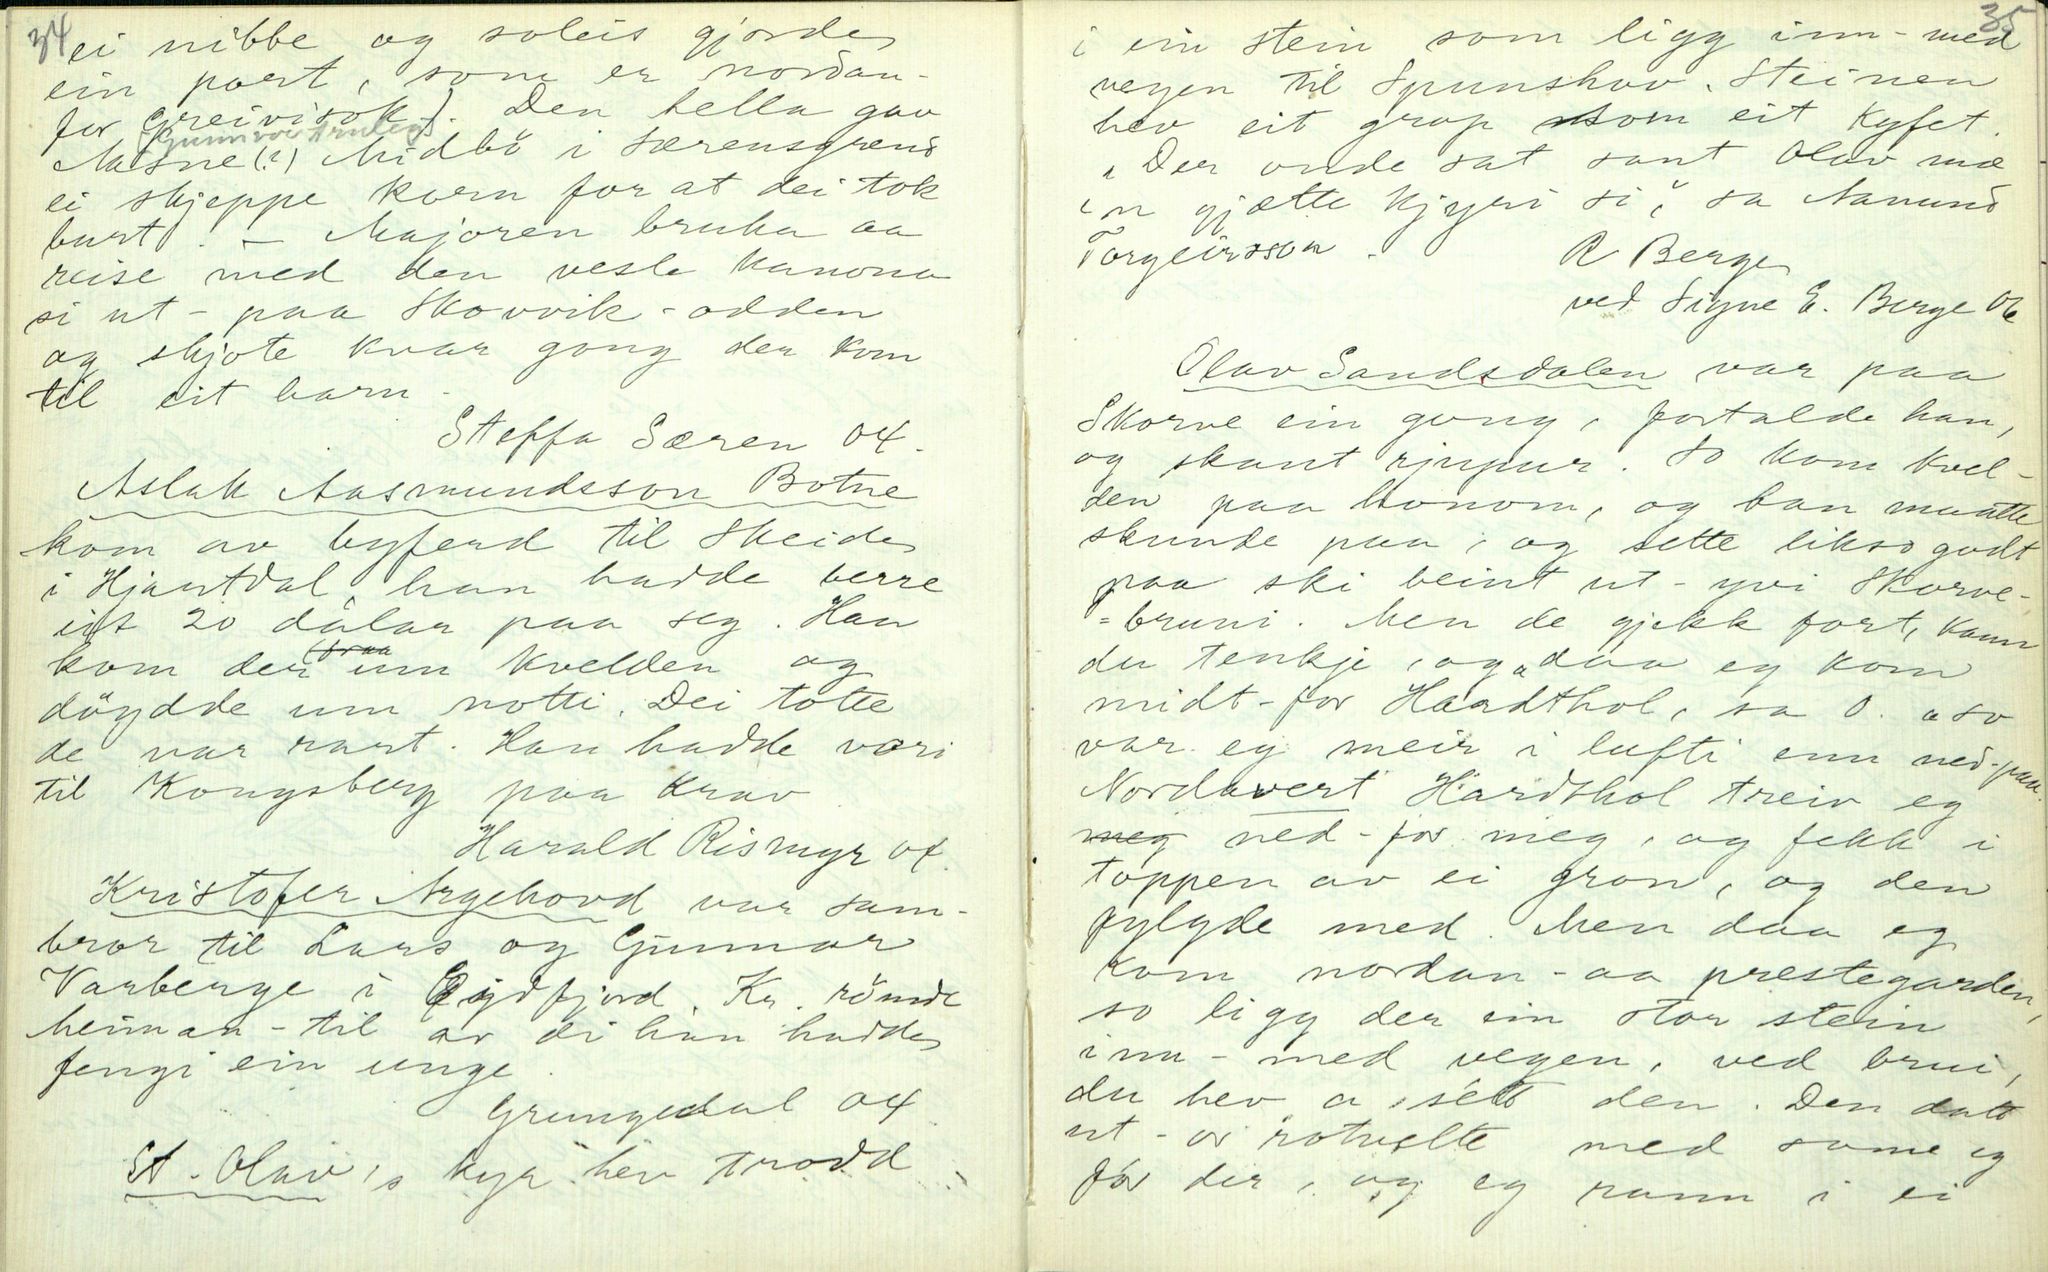 34
ei nibbe og soleis gjordes
ein port, som er nordan-
for Greivisok). Den hella gav
(Gunnvor truleg)
Aasne (?) Midbö i Særensgrend
ei skjeppe korn for at dei tok
burt. – Majoren bruka aa
reise med den vesle kanona
si ut-paa Skovvik-odden
og skjote kvar gong der kom
til eit barn –
Steffa Særen 04.
Aslak Aasmundsson Botne
kom av byferd til Skeides
i Hjartdal, han hadde berre
eit 20 dålar paa seg. Han
kom der um kvelden og
döydde um notti. Dei totte
de var rart. Han hadde vori
til Kongsberg paa Krav
Harald Rismyr 04.
Kristofer Argehovd var sam-
bror til Lars og Gunnar
Varberge i Eydfjord. Kr. römde
heiman-til av di han hadde
fengi ein unge.
Grungedal 04
St. Olav's kyr hev trodd
35
i ein stein som ligg inn-med
vegen til Spunshov. Steinen
hev eit grop som eit Kyfet.
"Der onde sat sant Olav mæ
'n gjætte kjyri si", sa Aanund
Torgeirsson.
R Berge
ved Signe E. Berge 06
Olav Sandsdalen var paa
Skorve ein gong, fortalde han,
og skaut rjupur. So kom kvel-
den paa honom, og han maatte
skunde paa, og sette likso godt
paa ski beint ut-yvi Skorve-
=bruni. Men de gjekk fort, kann
du tenkje, og "daa eg kom
midt-for Hardthol, sa O. "so
var eg meir i lufti enn ned-paa.
Nordavert Hardthol treiv eg
meg ned-for meg, og fekk i
toppen av ei gron, og den
fylgde med. Men daa eg
kom nordan-aa prestegarden,
so ligg der ein stor stein
inn-med vegen, ved brui,
du hev a sétt den. Den datt
ut-or rotvelte med some eg
fór der, og eg rann i ei